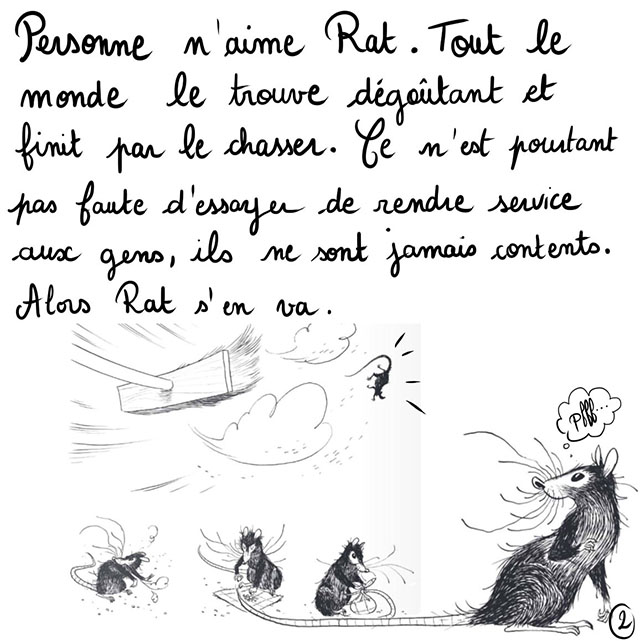 Personne n'aime Rat. Tout le
monde le trouve dégoûtant et
finit par le chasser. Ce n'est pourtant
pas faute d'essayer de rendre service
aux gens, ils ne sont jamais contents.
Alors Rat s'en va.
Pfff...
2